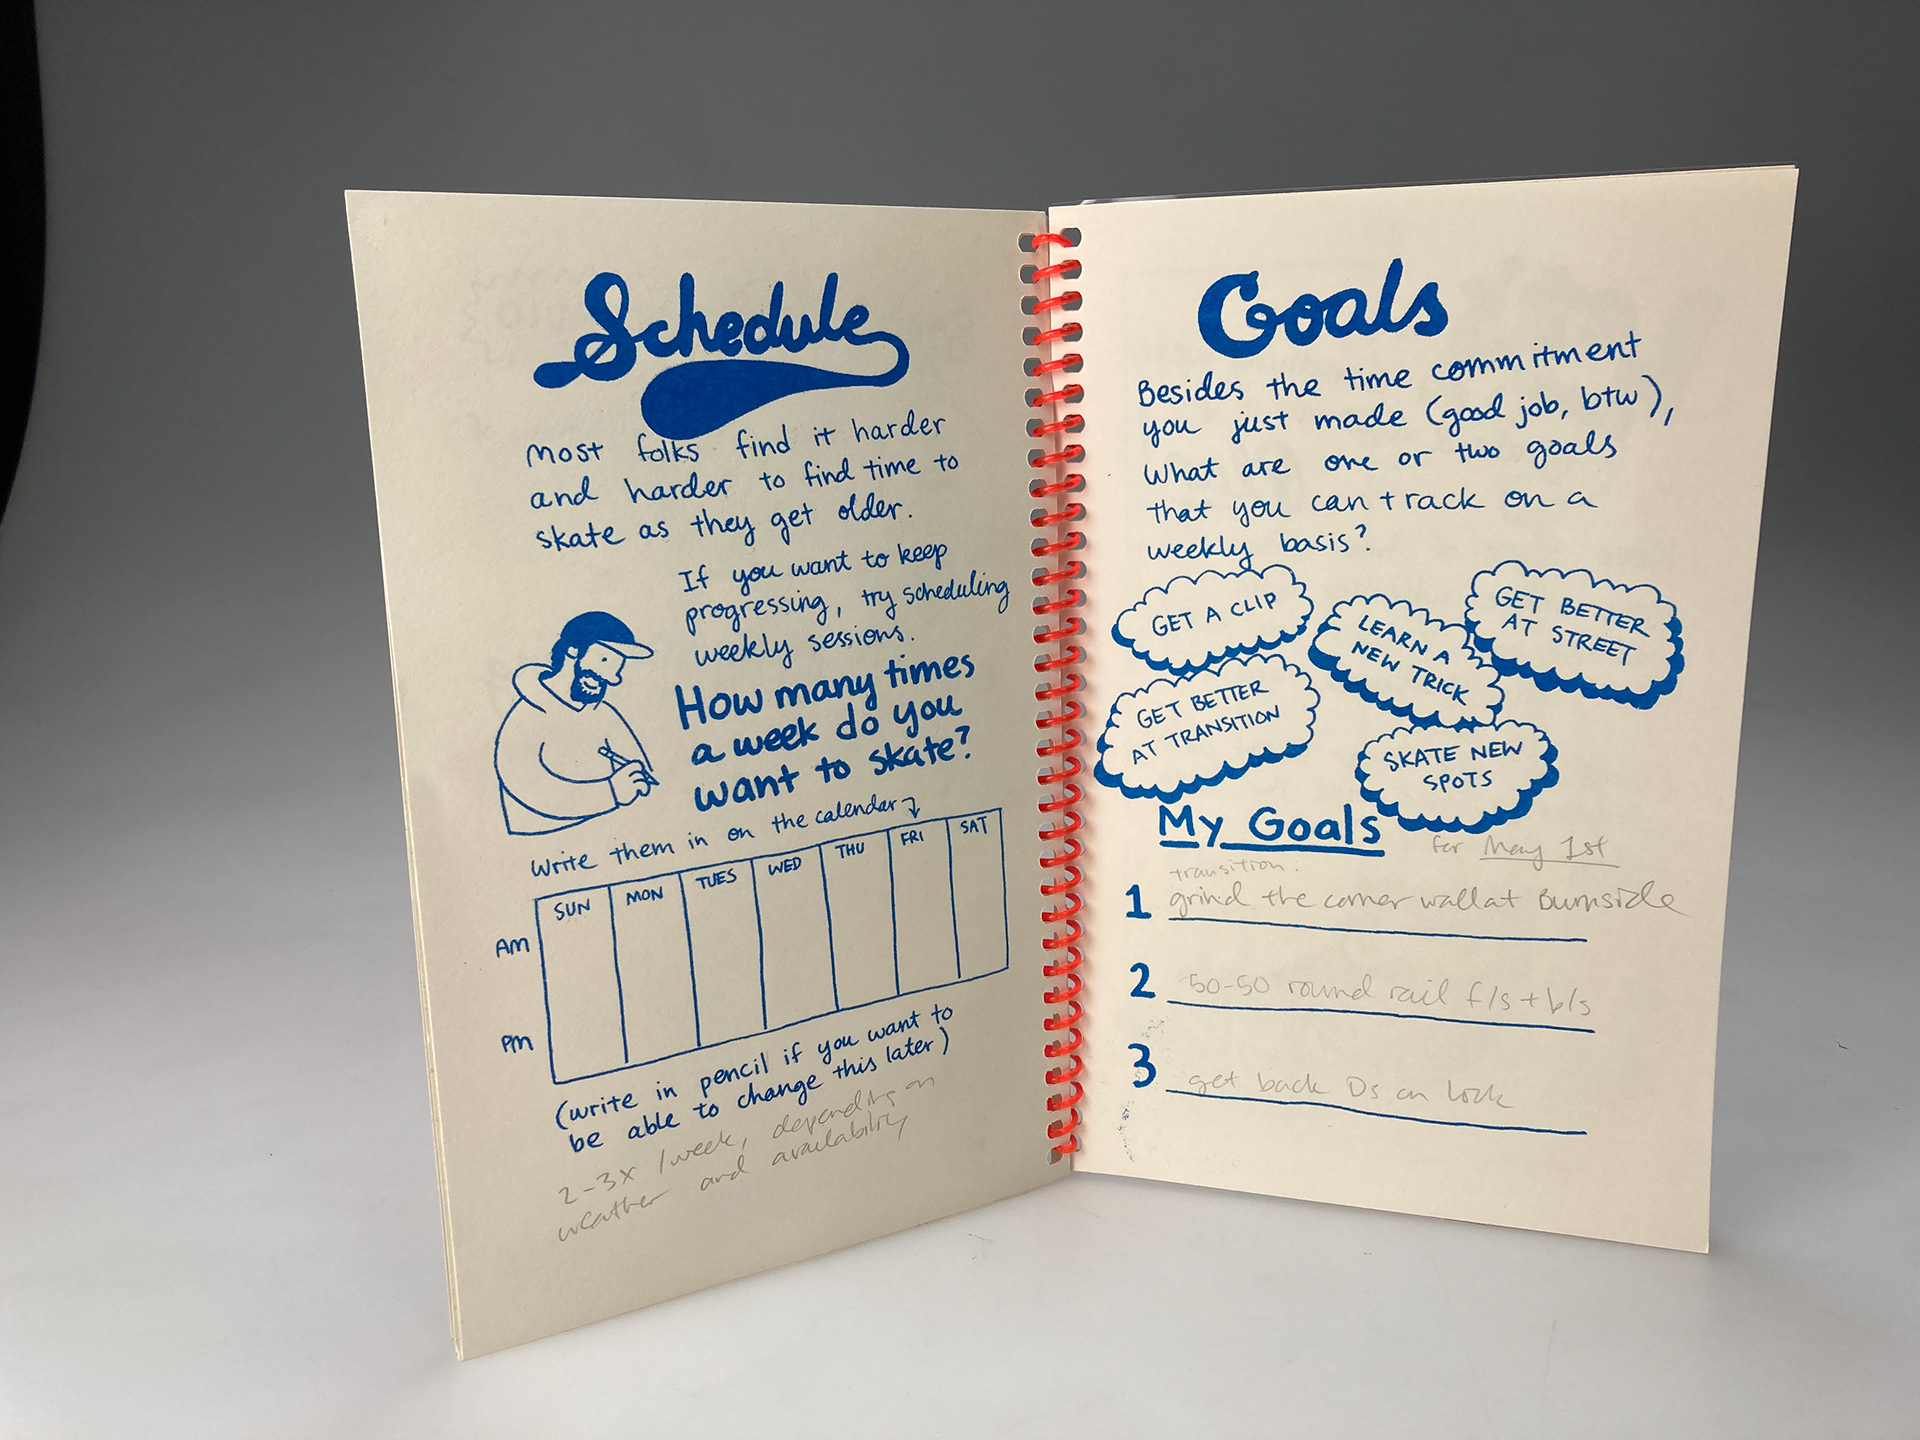 Schedule
Most folks find it harder
and harder to find time to
skate as they get older.
If you want to keep
progressing, try scheduling
weekly sessions.
How many times
a week do you
want to skate?
Write them in on the calendar
SUN MON TUES WED THU FRI SAT
AM
PM
(write in pencil if you want to
be able to change this later)
2-3x /week, depending on
weather and availability
Goals
Besides the time commitment
you just made (good job, btw),
What are one or two goals
that you can track on a
weekly basis?
GET A CLIP
LEARN A
NEW TRICK
GET BETTER
AT STREET
GET BETTER
AT TRANSITION
SKATE NEW
SPOTS
My Goals
for May 1st
transition:
1 grind the corner wall at Burnside
2 50-50 round rail f/s + b/s
3 get back Ds on lock